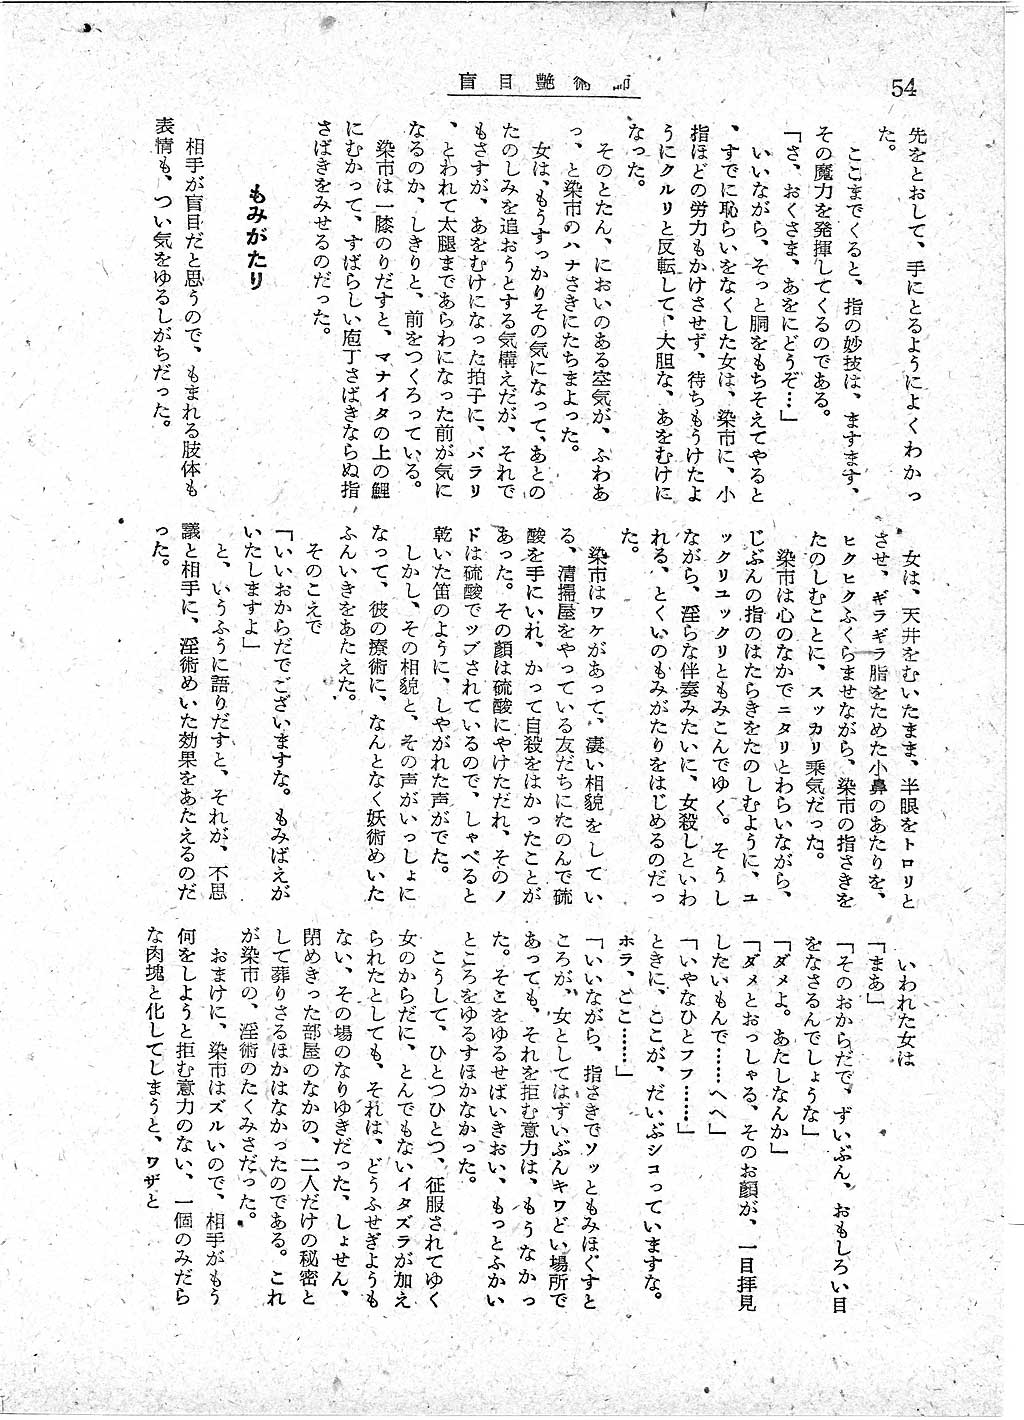 54
盲目艶術師
先をとおして、手にとるようによくわかっ
た。
ここまでくると、指の妙技は、ますます、
その魔力を発揮してくるのである。
「さ、おくさま、あをにどうぞ…」
いいながら、そっと胴をもちそえてやると
、すでに恥らいをなくした女は、染市に、小
指ほどの労力もかけさせず、待ちもうけたよ
うにクルリと反転して、大胆な、あをむけに
なった。
そのとたん、においのある空気が、ふわあ
っ、と染市のハナさきにたちまよった。
女は、もうすっかりその気になって、あとの
たのしみを追おうとする気構えだが、それで
もさすが、あをむけになった拍子に、バラリ
、とわれて太腿まであらわになった前が気に
なるのか、しきりと、前をつくろっている。
染市は一膝のりだすと、マナイタの上の鯉
にむかって、すばらしい庖丁さばきならぬ指
さばきをみせるのだった。
もみがたり
相手が盲目だと思うので、もまれる肢体も
表情も、つい気をゆるしがちだった。
女は、天井をむいたまま、半眼をトロリと
させ、ギラギラ脂をためた小鼻のあたりを、
ヒクヒクふくらませながら、染市の指さきを
たのしむことに、スッカリ乗気だった。
染市は心のなかでニタリとわらいながら、
じぶんの指のはたらきをたのしむように、ユ
ックリユックリともみこんでゆく。そうし
ながら、淫らな伴奏みたいに、女殺しといわ
れる、とくいのもみがたりをはじめるのだっ
た。
染市はワケがあって、凄い相貌をしてい
る、清掃屋をやっている友だちにたのんで硫
酸を手にいれ、かって自殺をはかったことが
あった。その顔は硫酸にやけただれ、そのノ
ドは硫酸でツブされているので、しゃべると
乾いた笛のように、しやがれた声がでた。
しかし、その相貌と、その声がいっしょに
なって、彼の療術に、なんとなく妖術めいた
ふんいきをあたえた。
そのこえで
「いいおからだでございますな。もみばえが
いたしますよ」
と、いうふうに語りだすと、それが、不思
議と相手に、淫術めいた効果をあたえるのだ
った。
いわれた女は
「まあ」
「そのおからだで、ずいぶん、おもしろい目
をなさるんでしょうな」
「ダメよ。あたしなんか」
「ダメとおっしゃる、そのお顔が、一目拝見
したいもんで……へへ」
「いやなひとフフ……」
ときに、ここが、だいぶシコっていますな。
ホラ、ここ……」
「いいながら、指さきでソッともみほぐすと
ころが、女としてはずいぶんキワどい場所で
あっても、それを拒む意力は、もうなかっ
た。そこをゆるせばいきおい、もっとふかい
ところをゆるすほかなかった。
こうして、ひとつひとつ、征服されてゆく
女のからだに、とんでもないイタズラが加え
られたとしても、それは、どうふせぎようも
ない、その場のなりゆきだった、しょせん、
閉めきった部屋のなかの、二人だけの秘密と
して葬りさるほかはなかったのである。これ
が染市の、淫術のたくみさだった。
おまけに、染市はズルいので、相手がもう
何をしようと拒む意力のない、一個のみだら
な肉塊と化してしまうと、ワザと